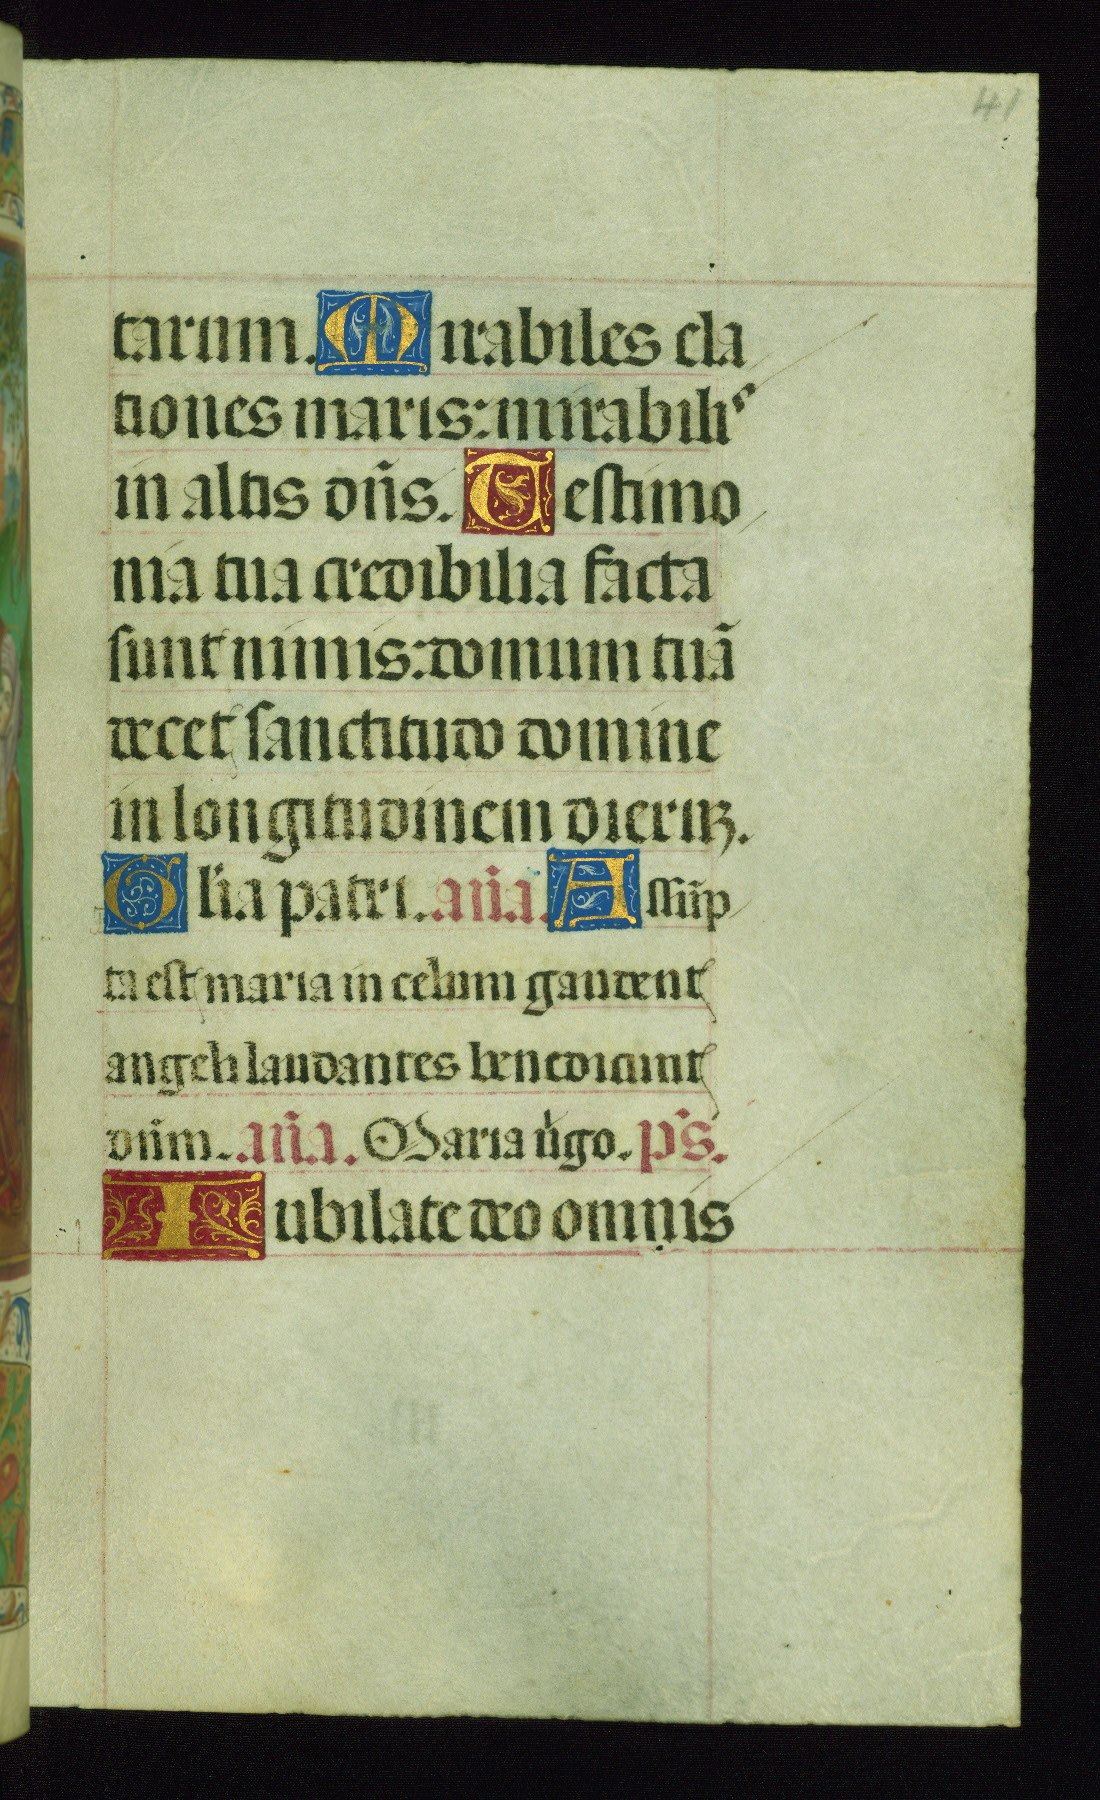 41
tarum. Mirabiles ela
tiones maris: mirabilis
in altis dñs. Testimo
nia tua credibilia facta
sunt nimis: domum tuã
decet sanctitudo domine
in longitudinem dierꝝ.
Gl'ia patri. aña. Assũp
ta est maria in celum gaudent
angeli laudantes benedicunt
dñm. aña. Maria v̾go. p̃s.
Iubilate deo omnis